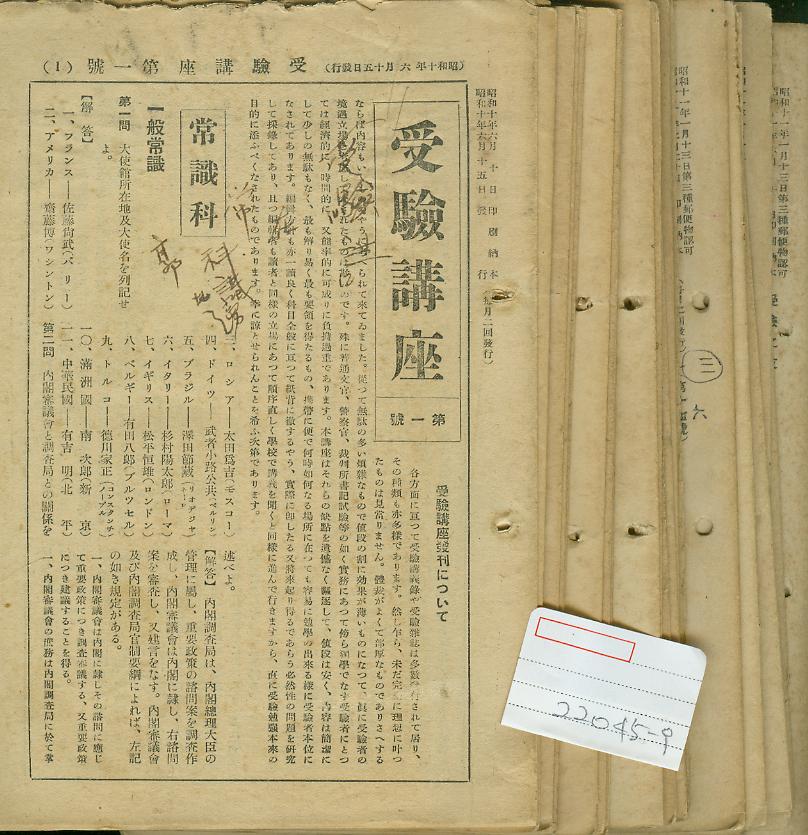 (昭和十年六月十五日發行) 受驗講座第一號 (1)
昭和十年六月 十 日印刷納本
昭和十年六月十五日發 行
每月二回發行)
受驗講座
第一號
受驗講座發刊について
各方面に亙つて受驗講義錄や受驗雜誌は多數發行されて居り、
その種類も亦多樣であります。然し乍ら、未だ完全に理想に叶つ
たものは見當りません。體裁がよくて部厚なものでありさへする
ならば內容もい
られて來てゐました。從つて無駄の多い煩雜なもので値段の割に効果が薄いものになつて、眞に受驗者の
境遇立場を
のです。殊に普通文官、警察官、裁判所書記試驗等の如く實務にあつて傍ら獨學でなす受驗者にとつ
ては經濟的に、時間的に、又能率的に可成りに負擔過重であります。本講座はそれらの缺點を遺憾なく驅逐して、値段は安く、內容は簡潔に
して少しの無駄もなく、最も解り易く最も要領を得たるもの、携帶に便で何時如何なる場所に在つても容易に勉學の出來る樣に受驗者本位に
なされてあります。編輯方針も亦一讀良く科目全般に亙つて紙背に徹するやう、實際に卽したる又將來起り得るであらう必然性の問題を硏究
して採錄してあり、且つ編輯者も讀者と同樣の立場にあつて順序直しく學校で講義を聞くと同樣に進んで行きますから、直に受驗勉强本來の
目的に添ふべくなされたものであります。幸に諒とせられんことを希ふ次第であります。
常識科
一般常識
第一問 大使館所在地及大使名を列記せ
よ。
【解答】
一、フランス――佐藤尙武(パリー)
二、アメリカ――齋藤博(ワシントン)
三、ロシア――太田爲吉(モスコー)
四、ドイツ――武者小路公共(ベルリン)
五、ブラジル――澤田節藏(リオデジャネーロ)
六、イタリー――杉村陽太郎(ローマ)
七、イギリス――松平恒雄(ロンドン)
八、ベルギー――有田八郎(ブルツセル)
九、トルコ――德川家正(コンスタンチノープル)
一〇、滿洲國――南次郎(新京)
一一、中華民國――有吉 明(北平)
第二問 內閣審議會と調査局との關係を
述べよ。
【解答】 內閣調査局は、內閣總理大臣の
管理に屬し、重要政策の諮問案を調査作
成し、內閣審議會は內閣に隷し、右諮問
案を審査し、又建言をなす。內閣審議會
及び內閣調査局官制要綱によれば、左記
の如き規定がある。
一、內閣審議會は內閣に隷しその諮問に應じ
て重要政策につき調査審議する、又重要政策
につき建議することを得る。
一、內閣審議會の庶務は內閣調査局に於て掌
昭和十一年一月十三日第三種郵便物認可
昭和十一年一月十三日第三種郵便物認可
三
六
22045-9